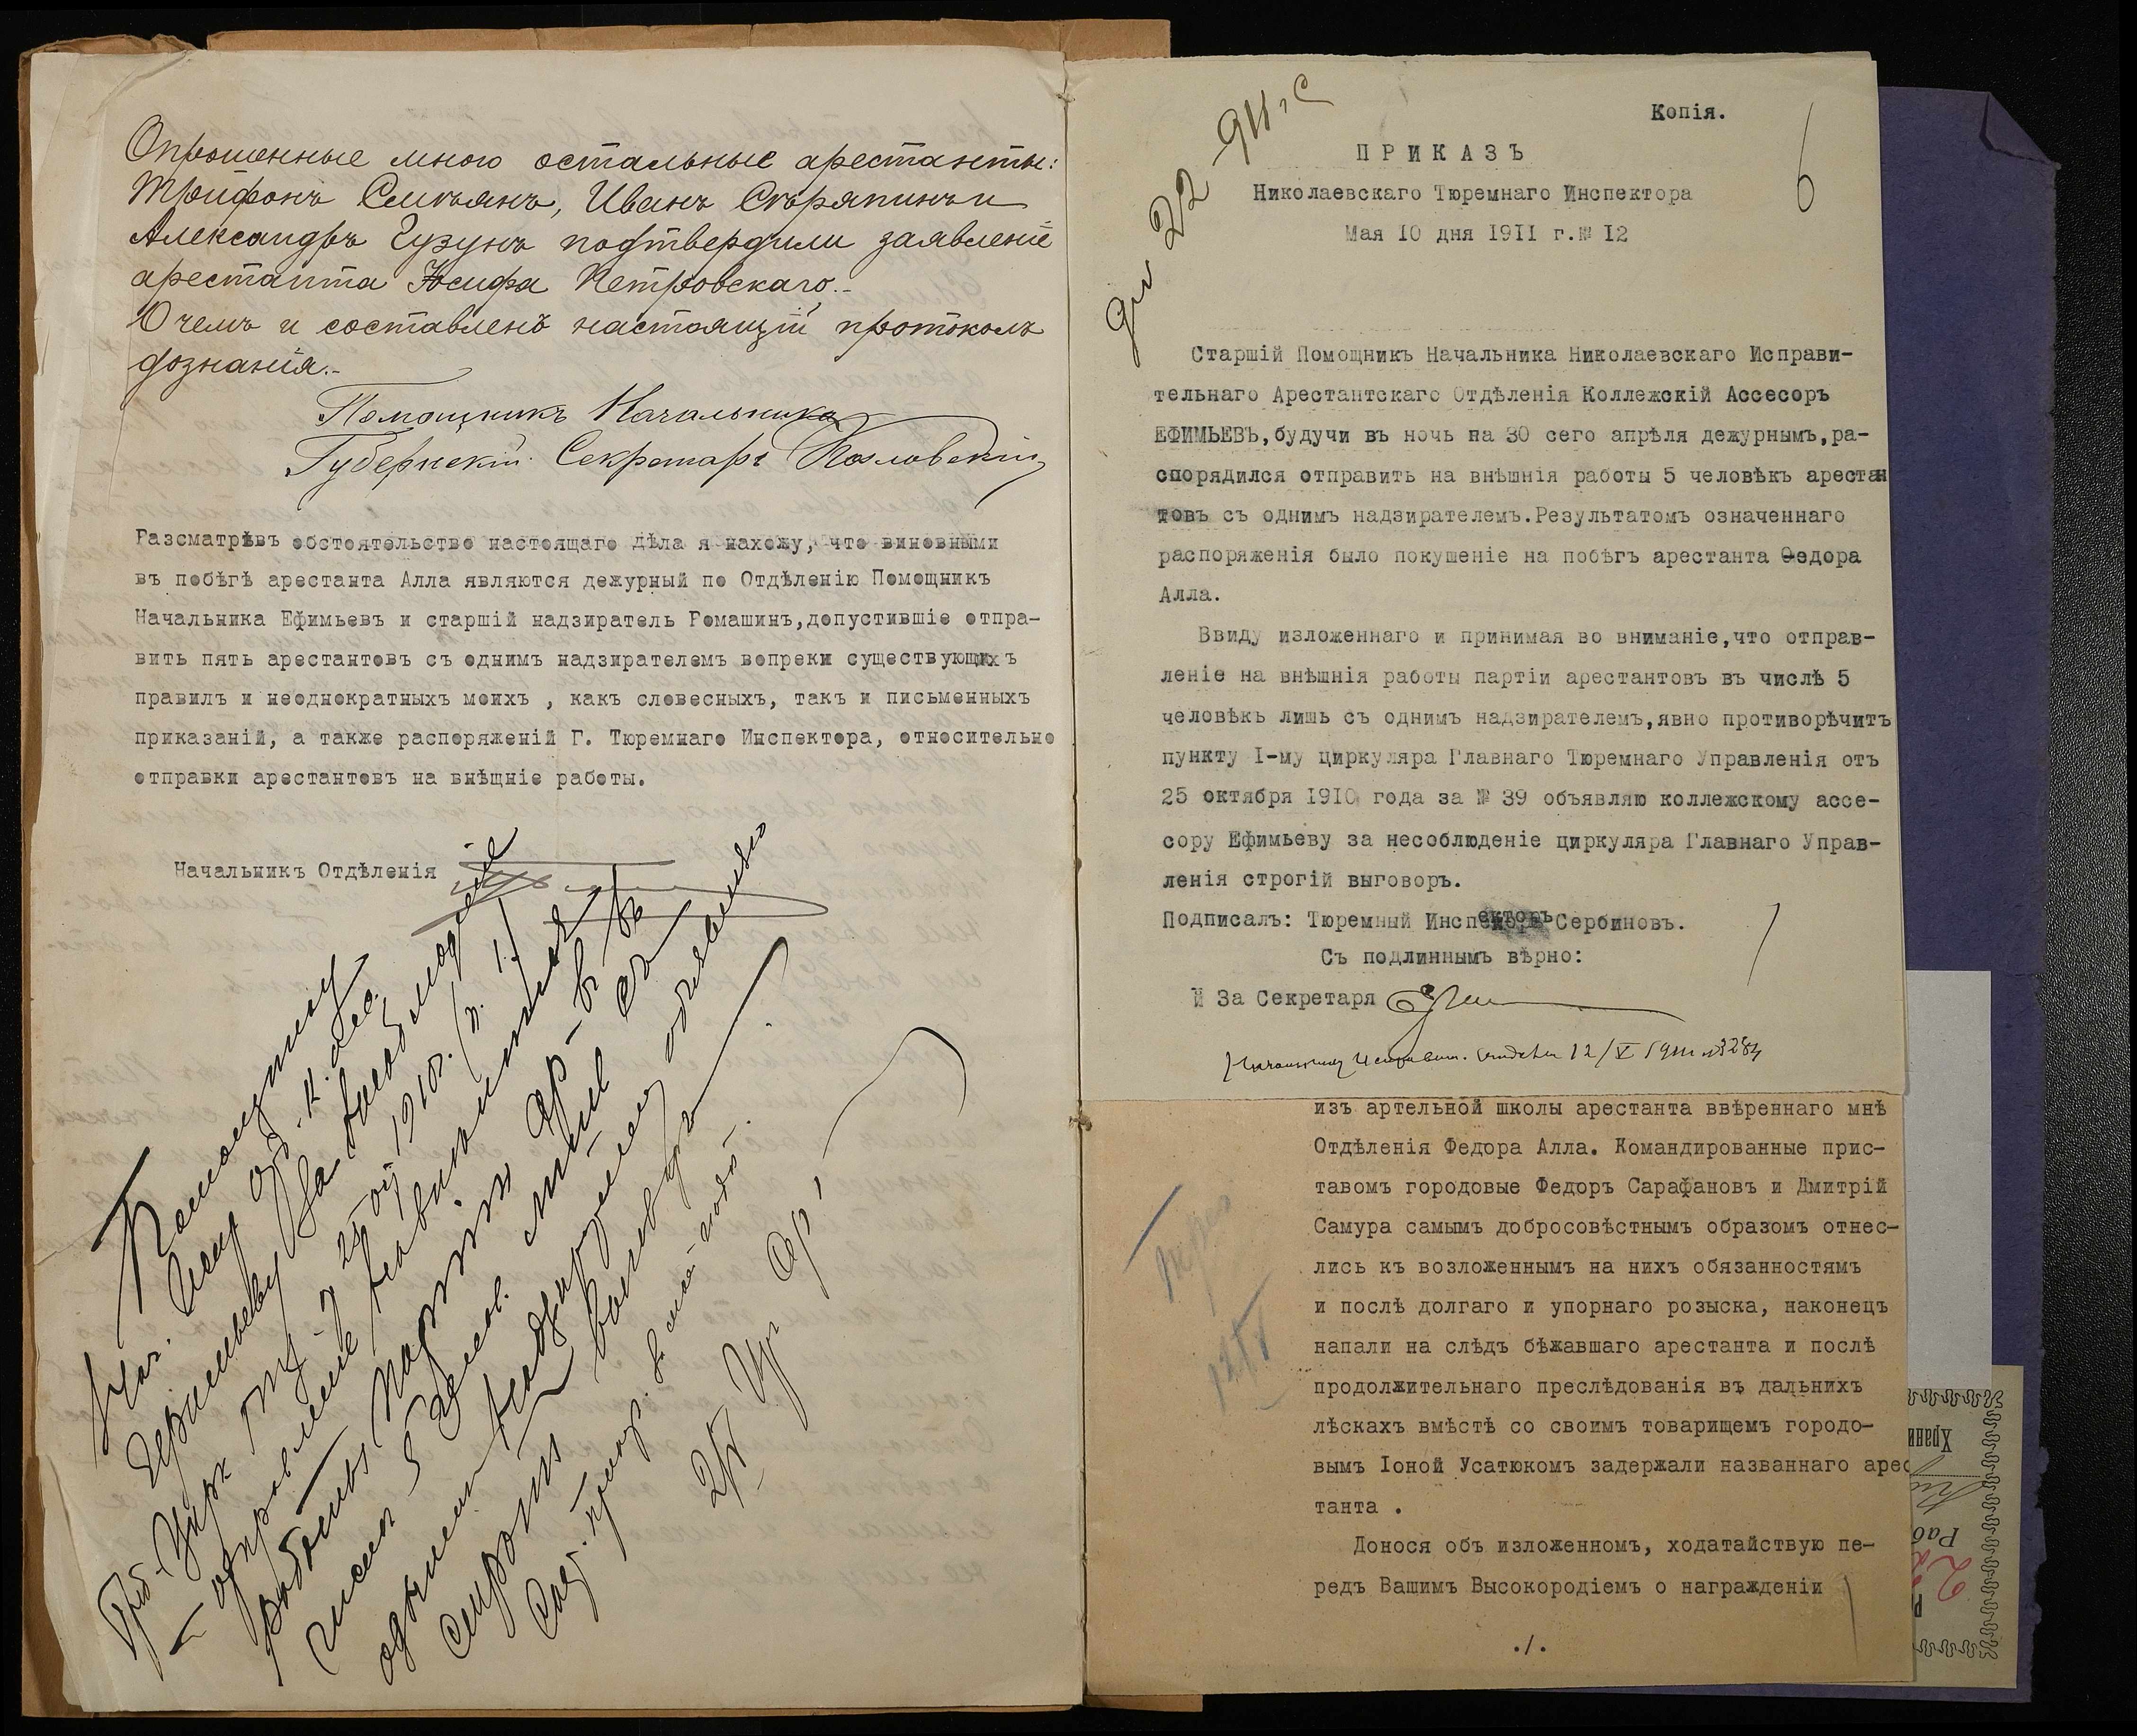 Опрошенные мною остальные арестанты:
Трифонъ Слисъянъ, Иванъ Стряпинъ и
Александръ Гузунъ подтвердили заявленіе
арестанта Іосифа Петровскаго.-
О чемъ и составленъ настоящій протоколъ
дознанія.-
Помощникъ Начальника
Губернскій Секретарь Козловскій
Разсмотрѣвъ обстоятельство настоящаго дѣла я нахожу, что виновными
въ побѣгѣ арестанта Алла являются дежурный по Отдѣленію Помощникъ
Начальника Ефимьевъ и старшій надзиратель Ромашинъ,допустившіе отпра-
вить пять арестантовъ съ однимъ надзирателемъ вопреки существующихъ
правилъ и неоднократныхъ моихъ , какъ словесныхъ, такъ и письменныхъ
приказаній, а также распоряженій Г. Тюремнаго Инспектора, относительно
отправки арестантовъ на внѣщніе работы.
Начальникъ Отдѣленія
Помощнику
Нач. Испр. ар.
Ефимьеву за несоблюденіе
Цирк. 25 1910г. (п. 1.)
отправленіе
работы партіи ар-въ въ
числѣ 5 съ
однимъ надзирателемъ объявляю
строгій выговоръ
Копія.
6
22 911 г
ПРИКАЗЪ
Николаевскаго Тюремнаго Инспектора
Мая 10 дня 1911 г.№ 12
Старшій Помощникъ Начальника Николаевскаго Исправи-
тельнаго Арестантскаго Отдѣленія Коллежскій Ассесоръ
ЕФИМЬЕВЪ,будучи въ ночь на 30 сего апрѣля дежурнымъ,ра-
спорядился отправить на внѣшнія работы 5 человѣкъ арестан
товъ съ однимъ надзирателемъ.Результатомъ означеннаго
распоряженія было покушеніе на побѣгъ арестанта Ѳедора
Алла.
Ввиду изложеннаго и принимая во вниманіе,что отправ-
леніе на внѣшнія работы партіи арестантовъ въ числѣ 5
человѣкъ лишь съ однимъ надзирателемъ,явно противорѣчитъ
пункту I-му циркуляра Главнаго Тюремнаго Управленія отъ
25 октября 1910 года за № 39 объявляю коллежскому ассе-
сору Ефимьеву за несоблюденіе циркуляра Главнаго Управ-
ленія строгій выговоръ.
Подписалъ: Тюремный Инспекторъ Сербиновъ.
Съ подлиннымъ вѣрно:
За Секретаря
Начальнику Исправит. 12/V 1911 № 3284
изъ артельной школы арестанта ввѣреннаго мнѣ
Отдѣленія Федора Алла. Командированные прис-
тавомъ городовые Федоръ Сарафановъ и Дмитрій
Самура самымъ добросовѣстнымъ образомъ отнес-
лись къ возложеннымъ на нихъ обязанностямъ
и послѣ долгаго и упорнаго розыска, наконецъ
напали на слѣдъ бѣжавшаго арестанта и послѣ
продолжительнаго преслѣдованія въ дальнихъ
лѣскахъ вмѣстѣ со своимъ товарищемъ городо-
вымъ Іоной Усатюкомъ задержали названнаго арес
танта .
Донося объ изложенномъ, ходатайствую пе-
редъ Вашимъ Высокородіемъ о награжденіи
./.
12/V
Храни
Раб